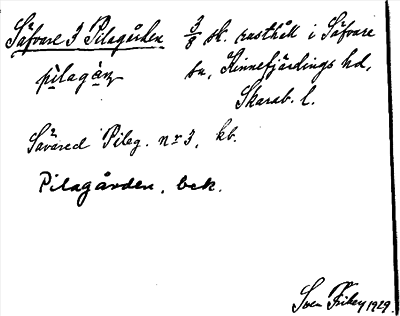 Säfvare 3 Pilagården 3/8 sk. rusthåll i Säfvare
pìlagàṇ sn, Kinnefjärdings hd,
Skarab. l.
Sävared Pileg. nr 3, kb.
Pilagården, bek.
Sven Friberg 1929.